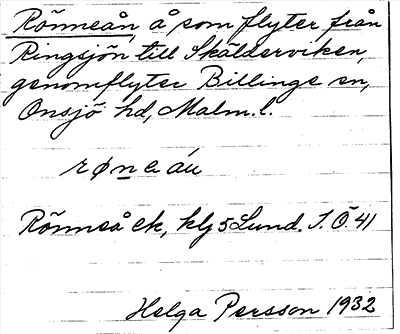 Rönneån, å som flyter från
Ringsjön till Skälderviken,
genomflyter Billinge sn,
Onsjö hd, Malm. l.
røneáu
Rönneå ek, klg 5 Lund. S. Ö. 41
Helga Persson 1932